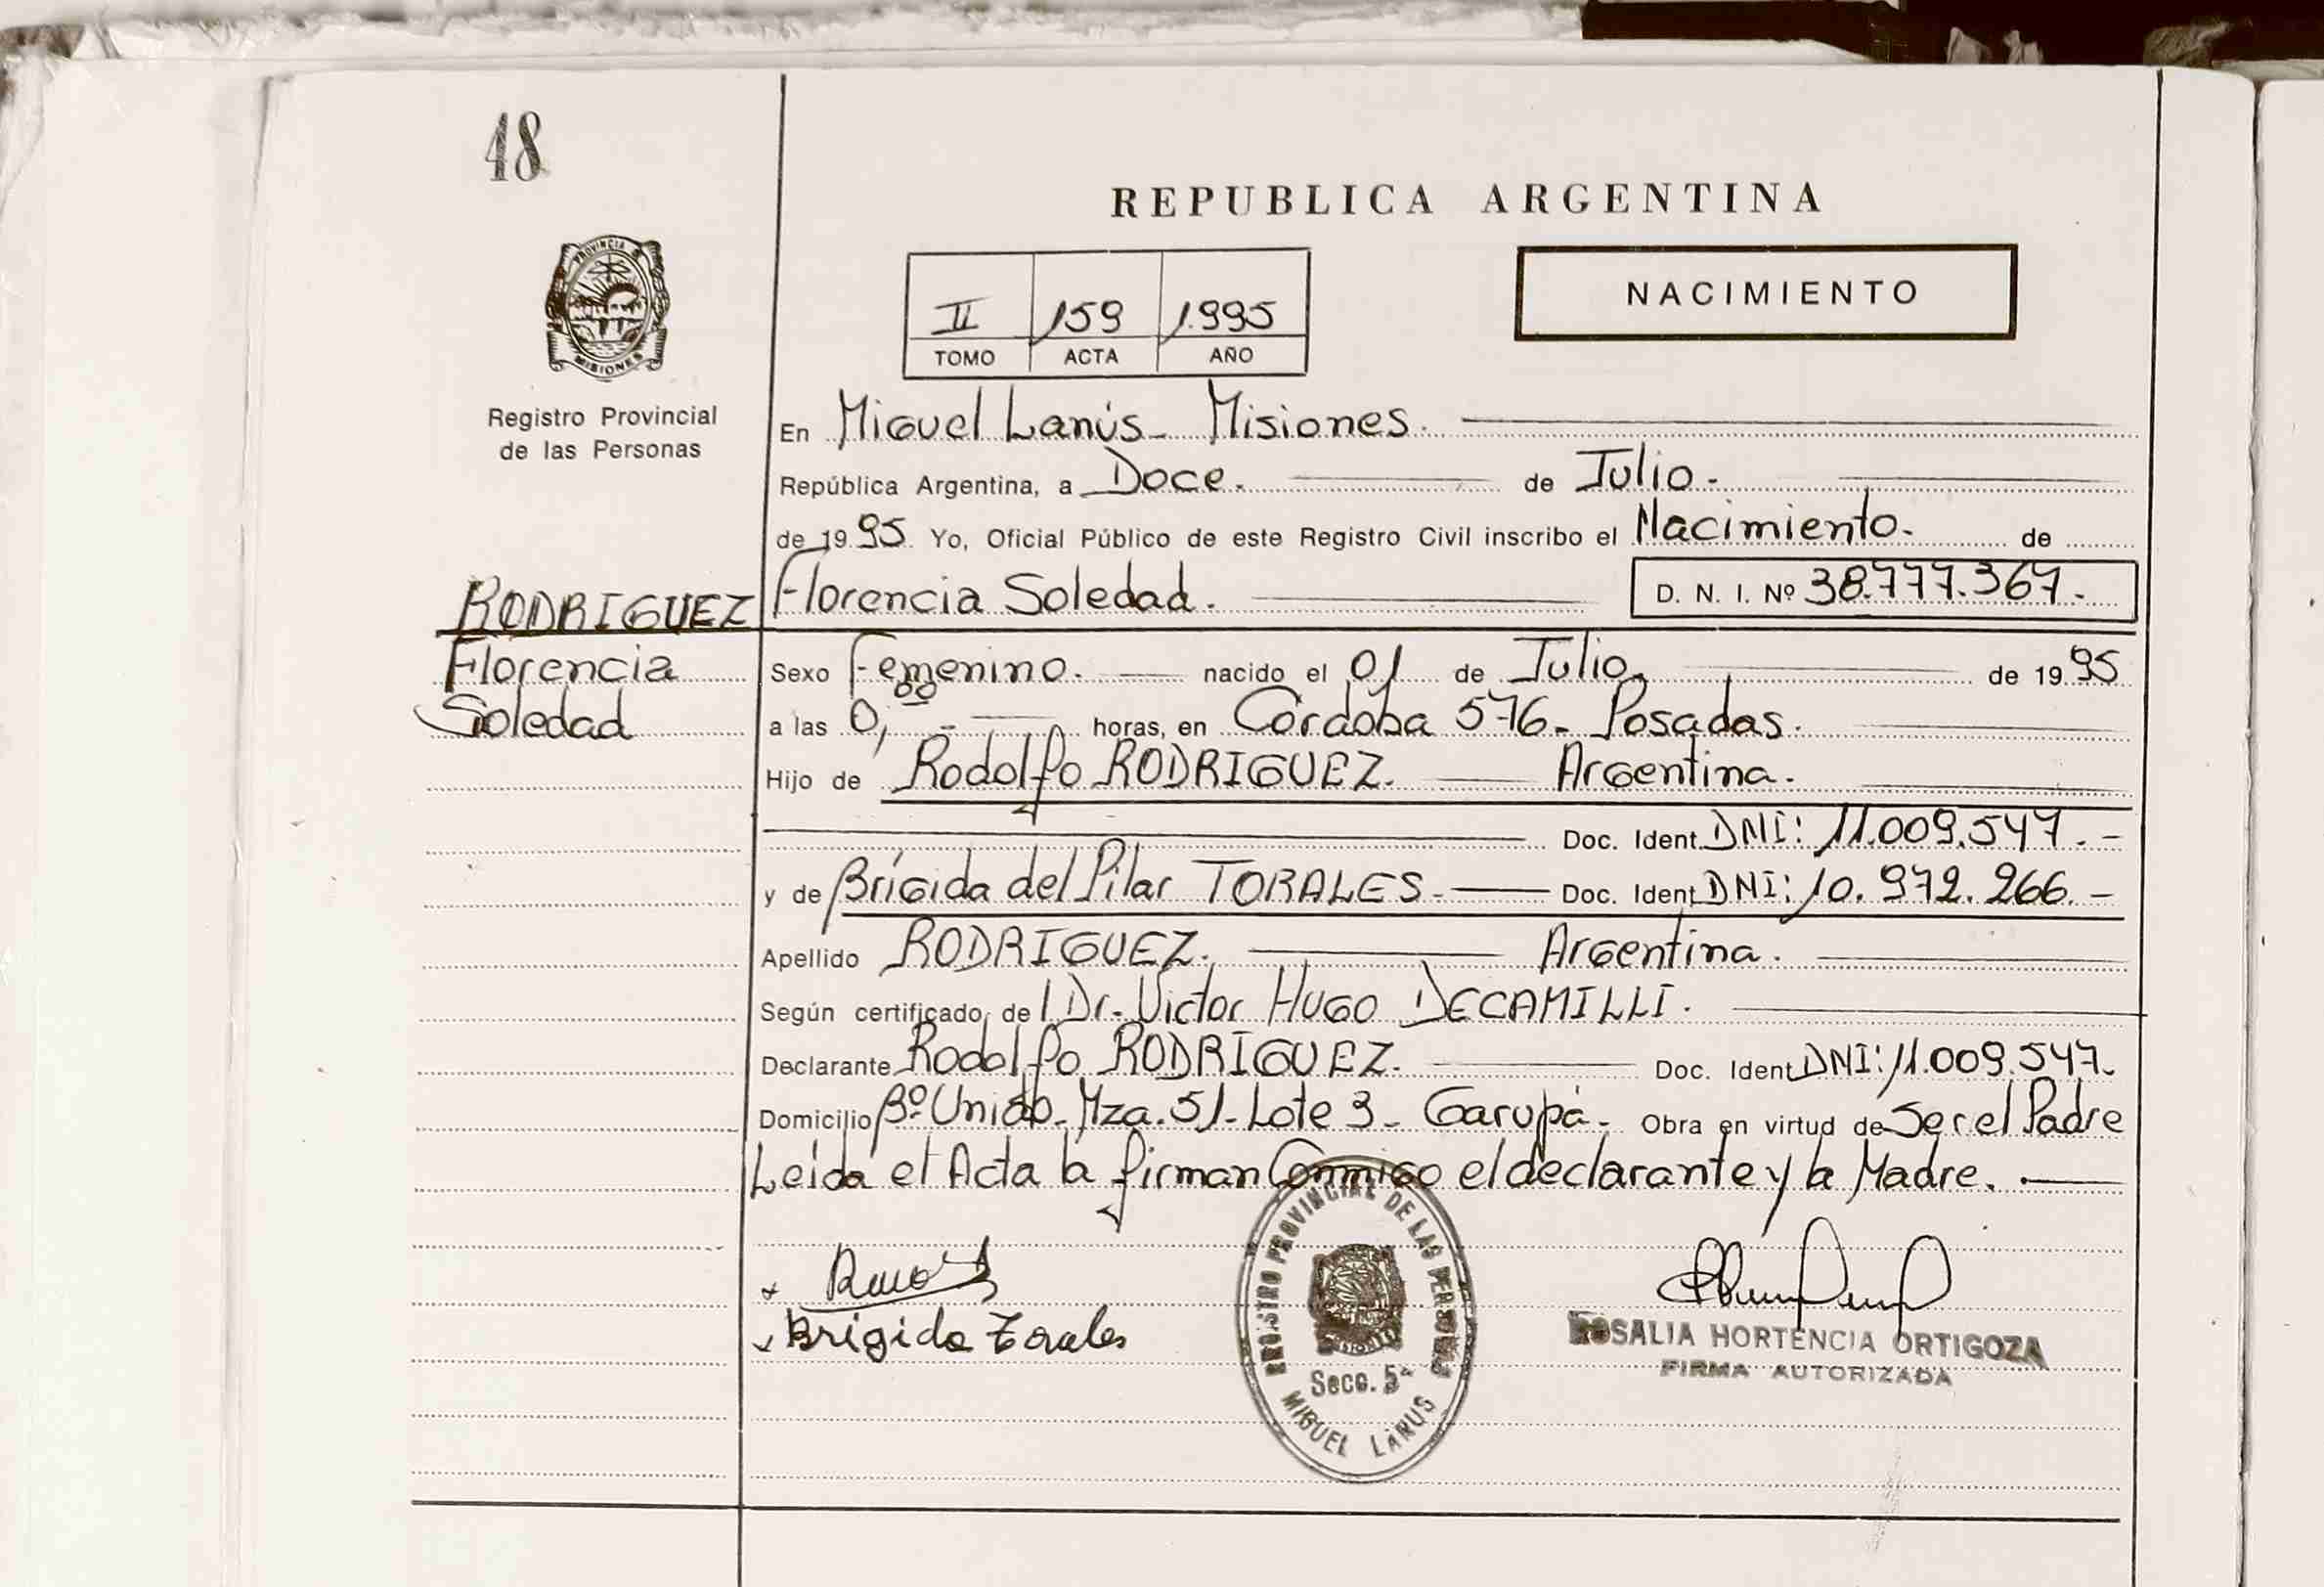 48
REPUBLICA ARGENTINA
PROVINCIA DE
MISIONES
II 159 1.995
TOMO ACTA AÑO
NACIMIENTO
Registro Provincial
de las Personas
En Miguel Lanús - Misiones.
República Argentina, a Doce. de Julio.
de 1995 Yo, Oficial Público de este Registro Civil inscribo el Nacimiento. de
RODRIGUEZ Florencia Soledad. D. N. I. Nº 38.777.367.-
Florencia Sexo Femenino. nacido el 01 de Julio. de 1995
Soledad a las 0,00 horas, en Córdoba 576 - Posadas.
Hijo de Rodolfo RODRIGUEZ. Argentina.
Doc. Ident. DNI: 11.009.547.-
y de Brígida del Pilar TORALES - Doc. Ident DNI: 10.972.266.-
Apellido RODRIGUEZ. Argentina.
Según certificado de l Dr. Victor HUGO DECAMILLI.
Declarante Rodolfo RODRIGUEZ. Doc. Ident DNI: 11.009.547.
Domicilio Bº Unido - Mza. 51 - Lote 3 - Garupá - Obra en virtud de Ser el Padre
Leída el Acta la firman Conmigo el declarante y la Madre.
Brigida Torales
REGISTRO PROVINCIAL DE LAS PERSONAS
Secc. 5ª
MIGUEL LANUS
ROSALIA HORTENCIA ORTIGOZA
FIRMA AUTORIZADA